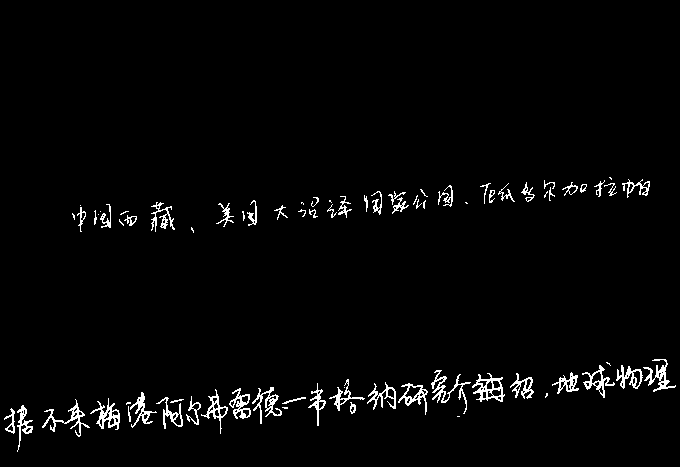 中国西藏、美国大沼泽国家公园、厄瓜多尔加拉帕
据不来梅港阿尔弗雷德—韦格纳研究介绍，地球物理